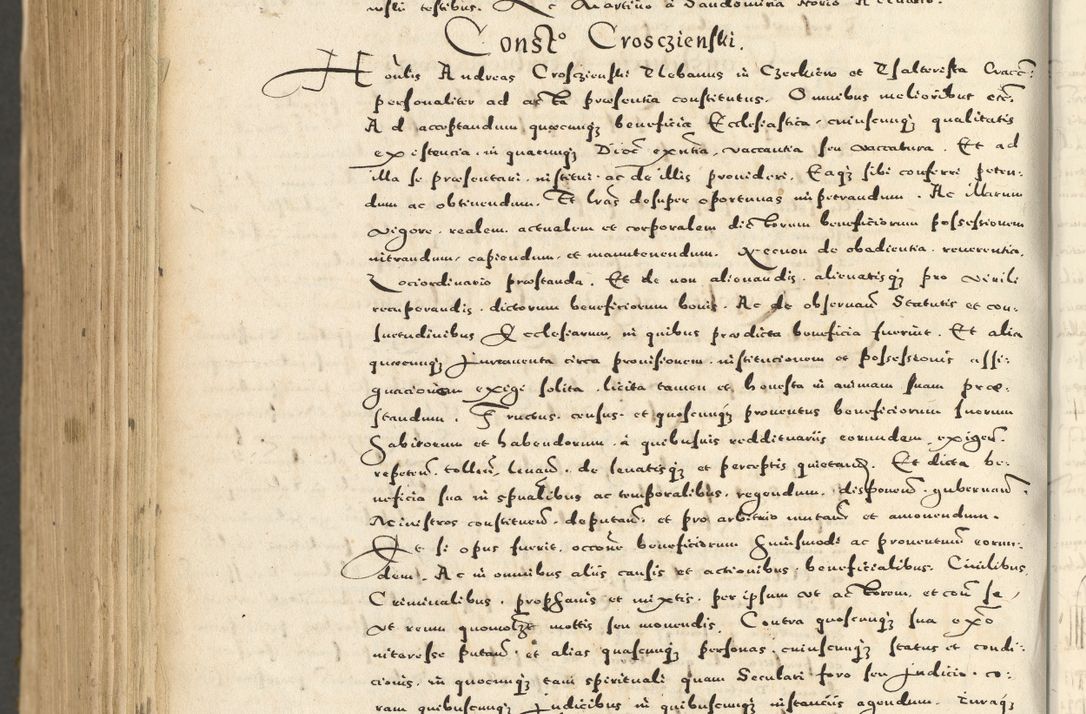 testibus. Ac Martino à Sandomiria Notario
Constō Crosczienski.
Honlis Andreas Crosczienski Plebanus in Czerkiew et Psalterista Cracc:
personaliter ad acta præsentia constitutus. Omnibus melioribus etc.
Ad acceptandum quæcunqz beneficia Ecclesiastica, cuiuscunqz qualitatis
existencia, in quacunqz Dioc exntia, vaccantia seu vaccatura. Et ad
illa se præsentari, institui ac de illis prouideri. Eaqz sibi conferri peten-
dum ac obtinendum. Et lras desuper oportunas impetrandum. Ac illarum
vigore, realem actualem et corporalem dictorum beneficiorum possessionem
intrandum, capiendum, et manutenendum. Necnon de obedientia, reuerentia,
Loci ordinario præstanda. Et de non alienandis, alienatisqz pro virili
recuperandis, dictorum beneficiorum bonis. Ac de obseruan Statutis et con-
suetudinibus Ecclesiarum, in quibus prædicta beneficia fuerint. Et alia
quæcunqz Juramenta circa prouisionem, institucionem et possessionis assi-
gnacionem exigi solita, licita tamen et honesta in animam suam præ-
standum. Fructus, census, et quoscunqz prouentus beneficiorum suorum
habitorum et habendorum, à quibusuis reddituariis eorundem, exigen
repeten, tollen, leuan, de leuatisqz et perceptis quietand. Et dicta be-
neficia sua in spualibus ac temporalibus, regendum, disponen, gubernan.
Ministros constituen, deputan, et pro arbitrio mutan et amouendum.
Et si opus fuerit, occone beneficiorum huiusmodi ac prouentuum eorun-
dem. Ac in omnibus aliis causis et actionibus, beneficialibus, Ciuilibus,
Criminalibus, prophanis et mixtis, per ipsum vt actorem, et con se,
vt reum quomolzt mottis seu mouendis. Contra quoscunqz sua exo
interesse putan, et alias quascunqz personas, cuiuscunqz status et condi-
cionis, in quocunqz tam spirituali quam Seculari foro seu Judicio, co-
ram quibuscunqz Judicibus in instanciis agendum.